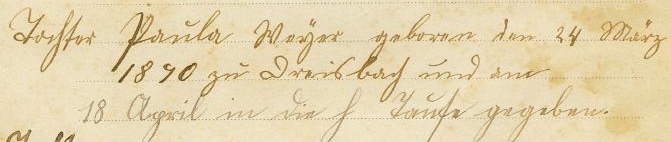 Tochter Paula Weyer geboren den 24 März
1890 zu Dreisbach und am
18 April in die h Taufe gegeben.